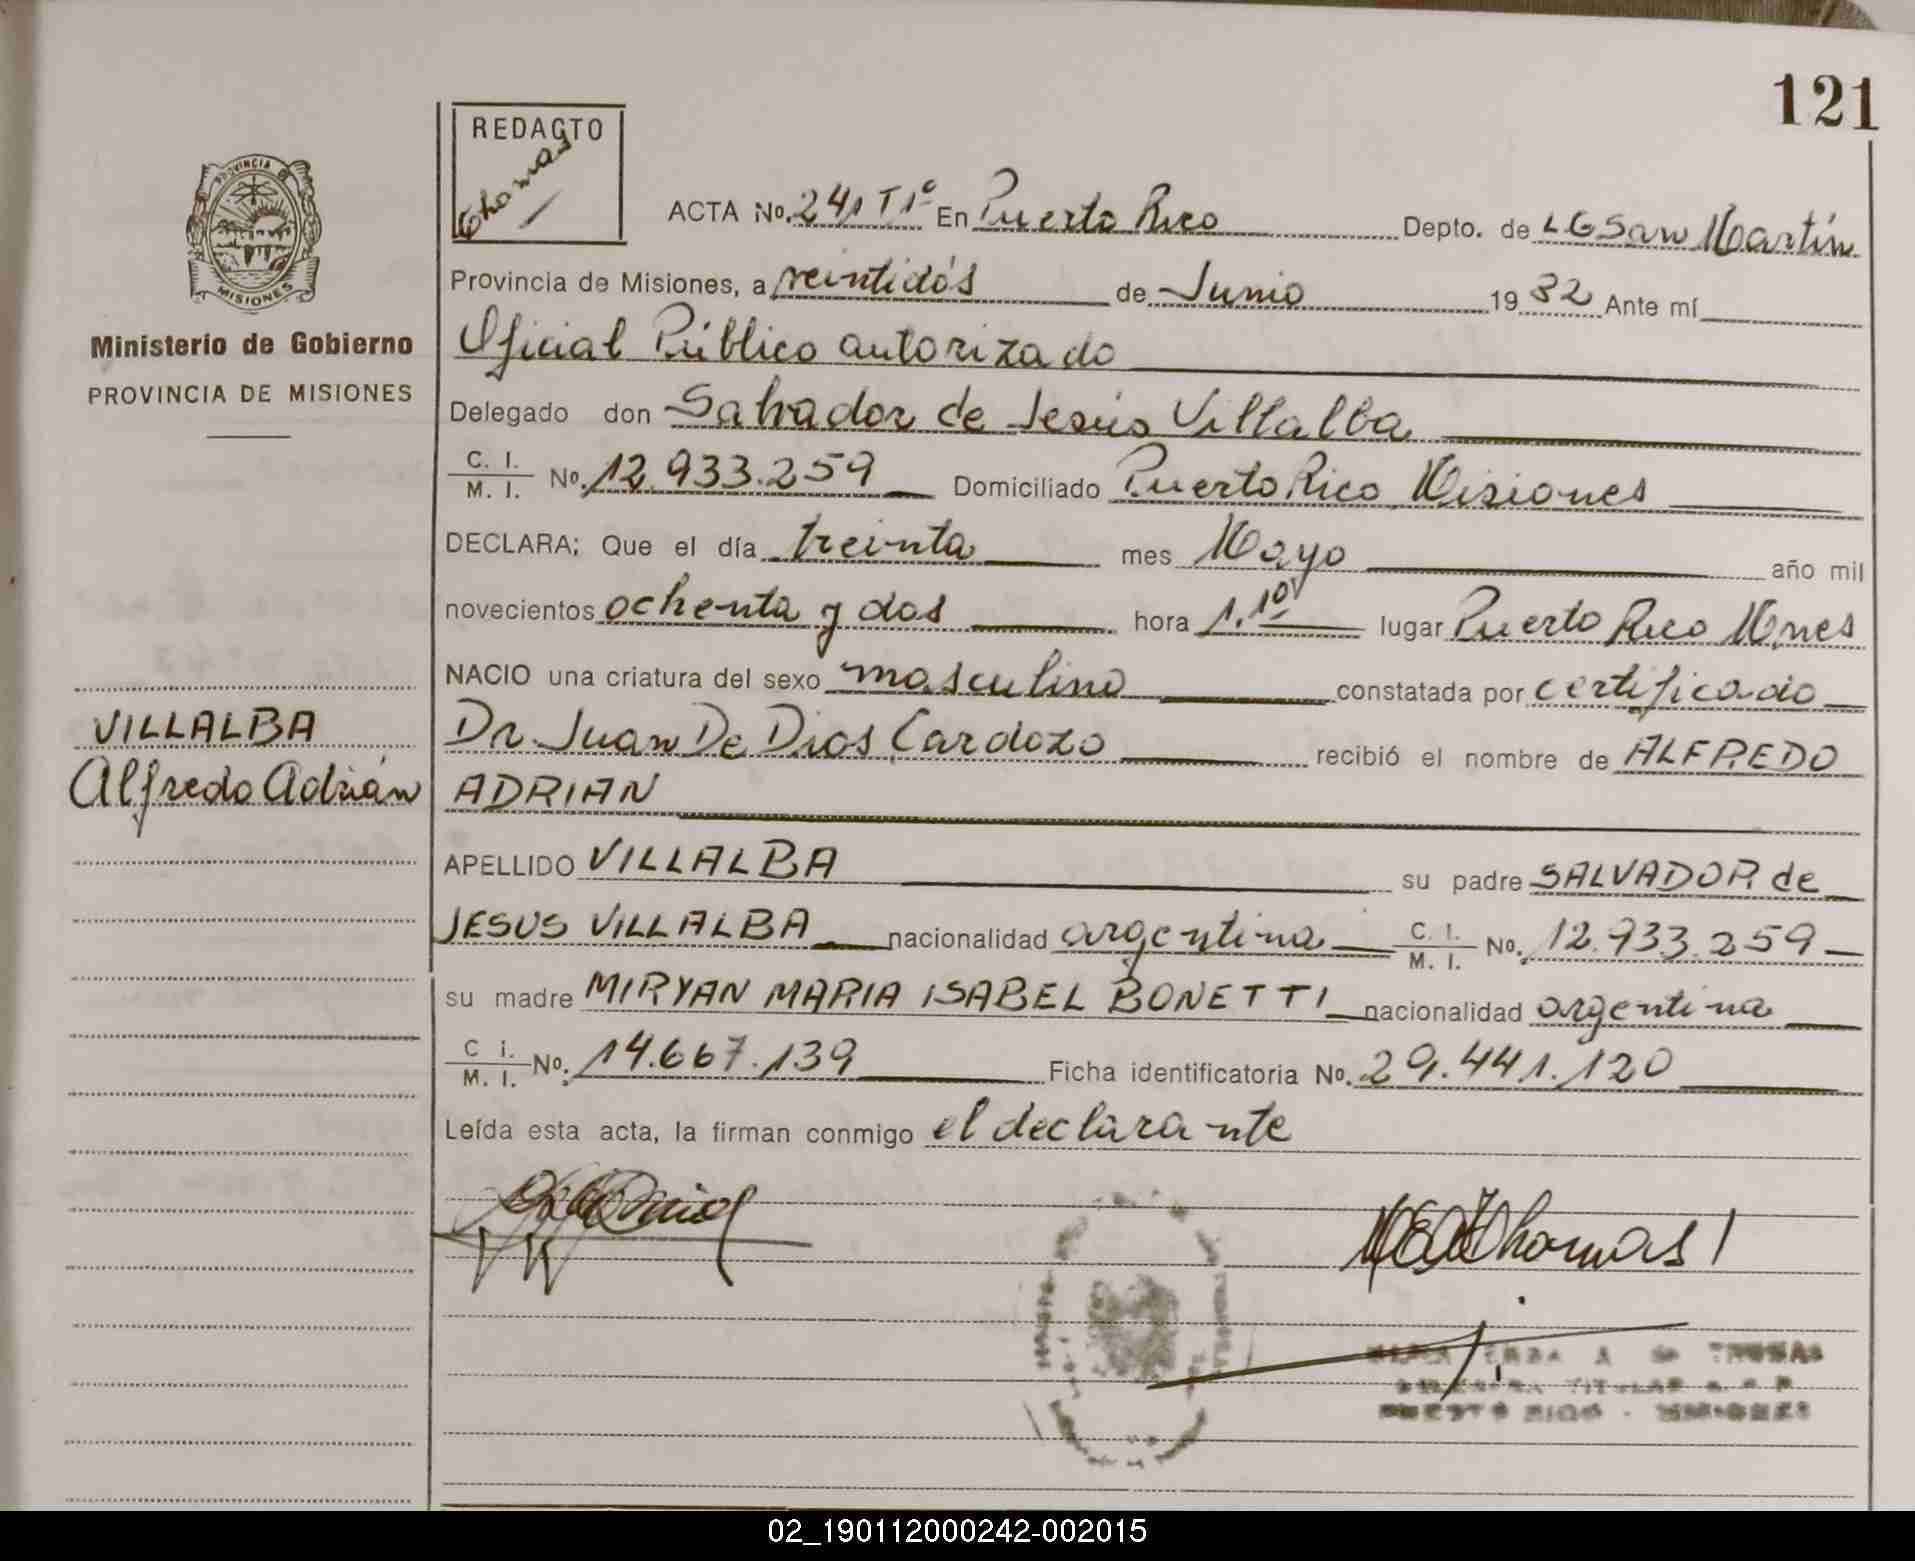 121
REDACTO
Thomas
PROVINCIA
MISIONES
Ministerio de Gobierno
PROVINCIA DE MISIONES
ACTA No. 241 T1º En Puerto Rico Depto. de LG San Martín
Provincia de Misiones, a veintidós de Junio 1982 Ante mí
Oficial Público autorizado
Delegado don Salvador de Jesús Villalba
C. I. / M. I. No. 12.933.259 Domiciliado Puerto Rico Misiones
DECLARA; Que el día treinta mes Mayo año mil
novecientos ochenta y dos hora 1.10 lugar Puerto Rico Mnes
NACIO una criatura del sexo masculino constatada por certificado
VILLALBA
Dr. Juan De Dios Cardozo recibió el nombre de ALFREDO
Alfredo Adrián
ADRIAN
APELLIDO VILLALBA su padre SALVADOR de
JESUS VILLALBA nacionalidad argentina C. I. / M. I. No. 12.933.259
su madre MIRYAN MARIA ISABEL BONETTI nacionalidad argentina
C i. / M. I. No. 14.667.139 Ficha identificatoria No. 29.441.120
Leída esta acta, la firman conmigo el declarante
Thomas
A de THOMAS
TITULAR
PUERTO RICO - MISIONES
02_190112000242-002015